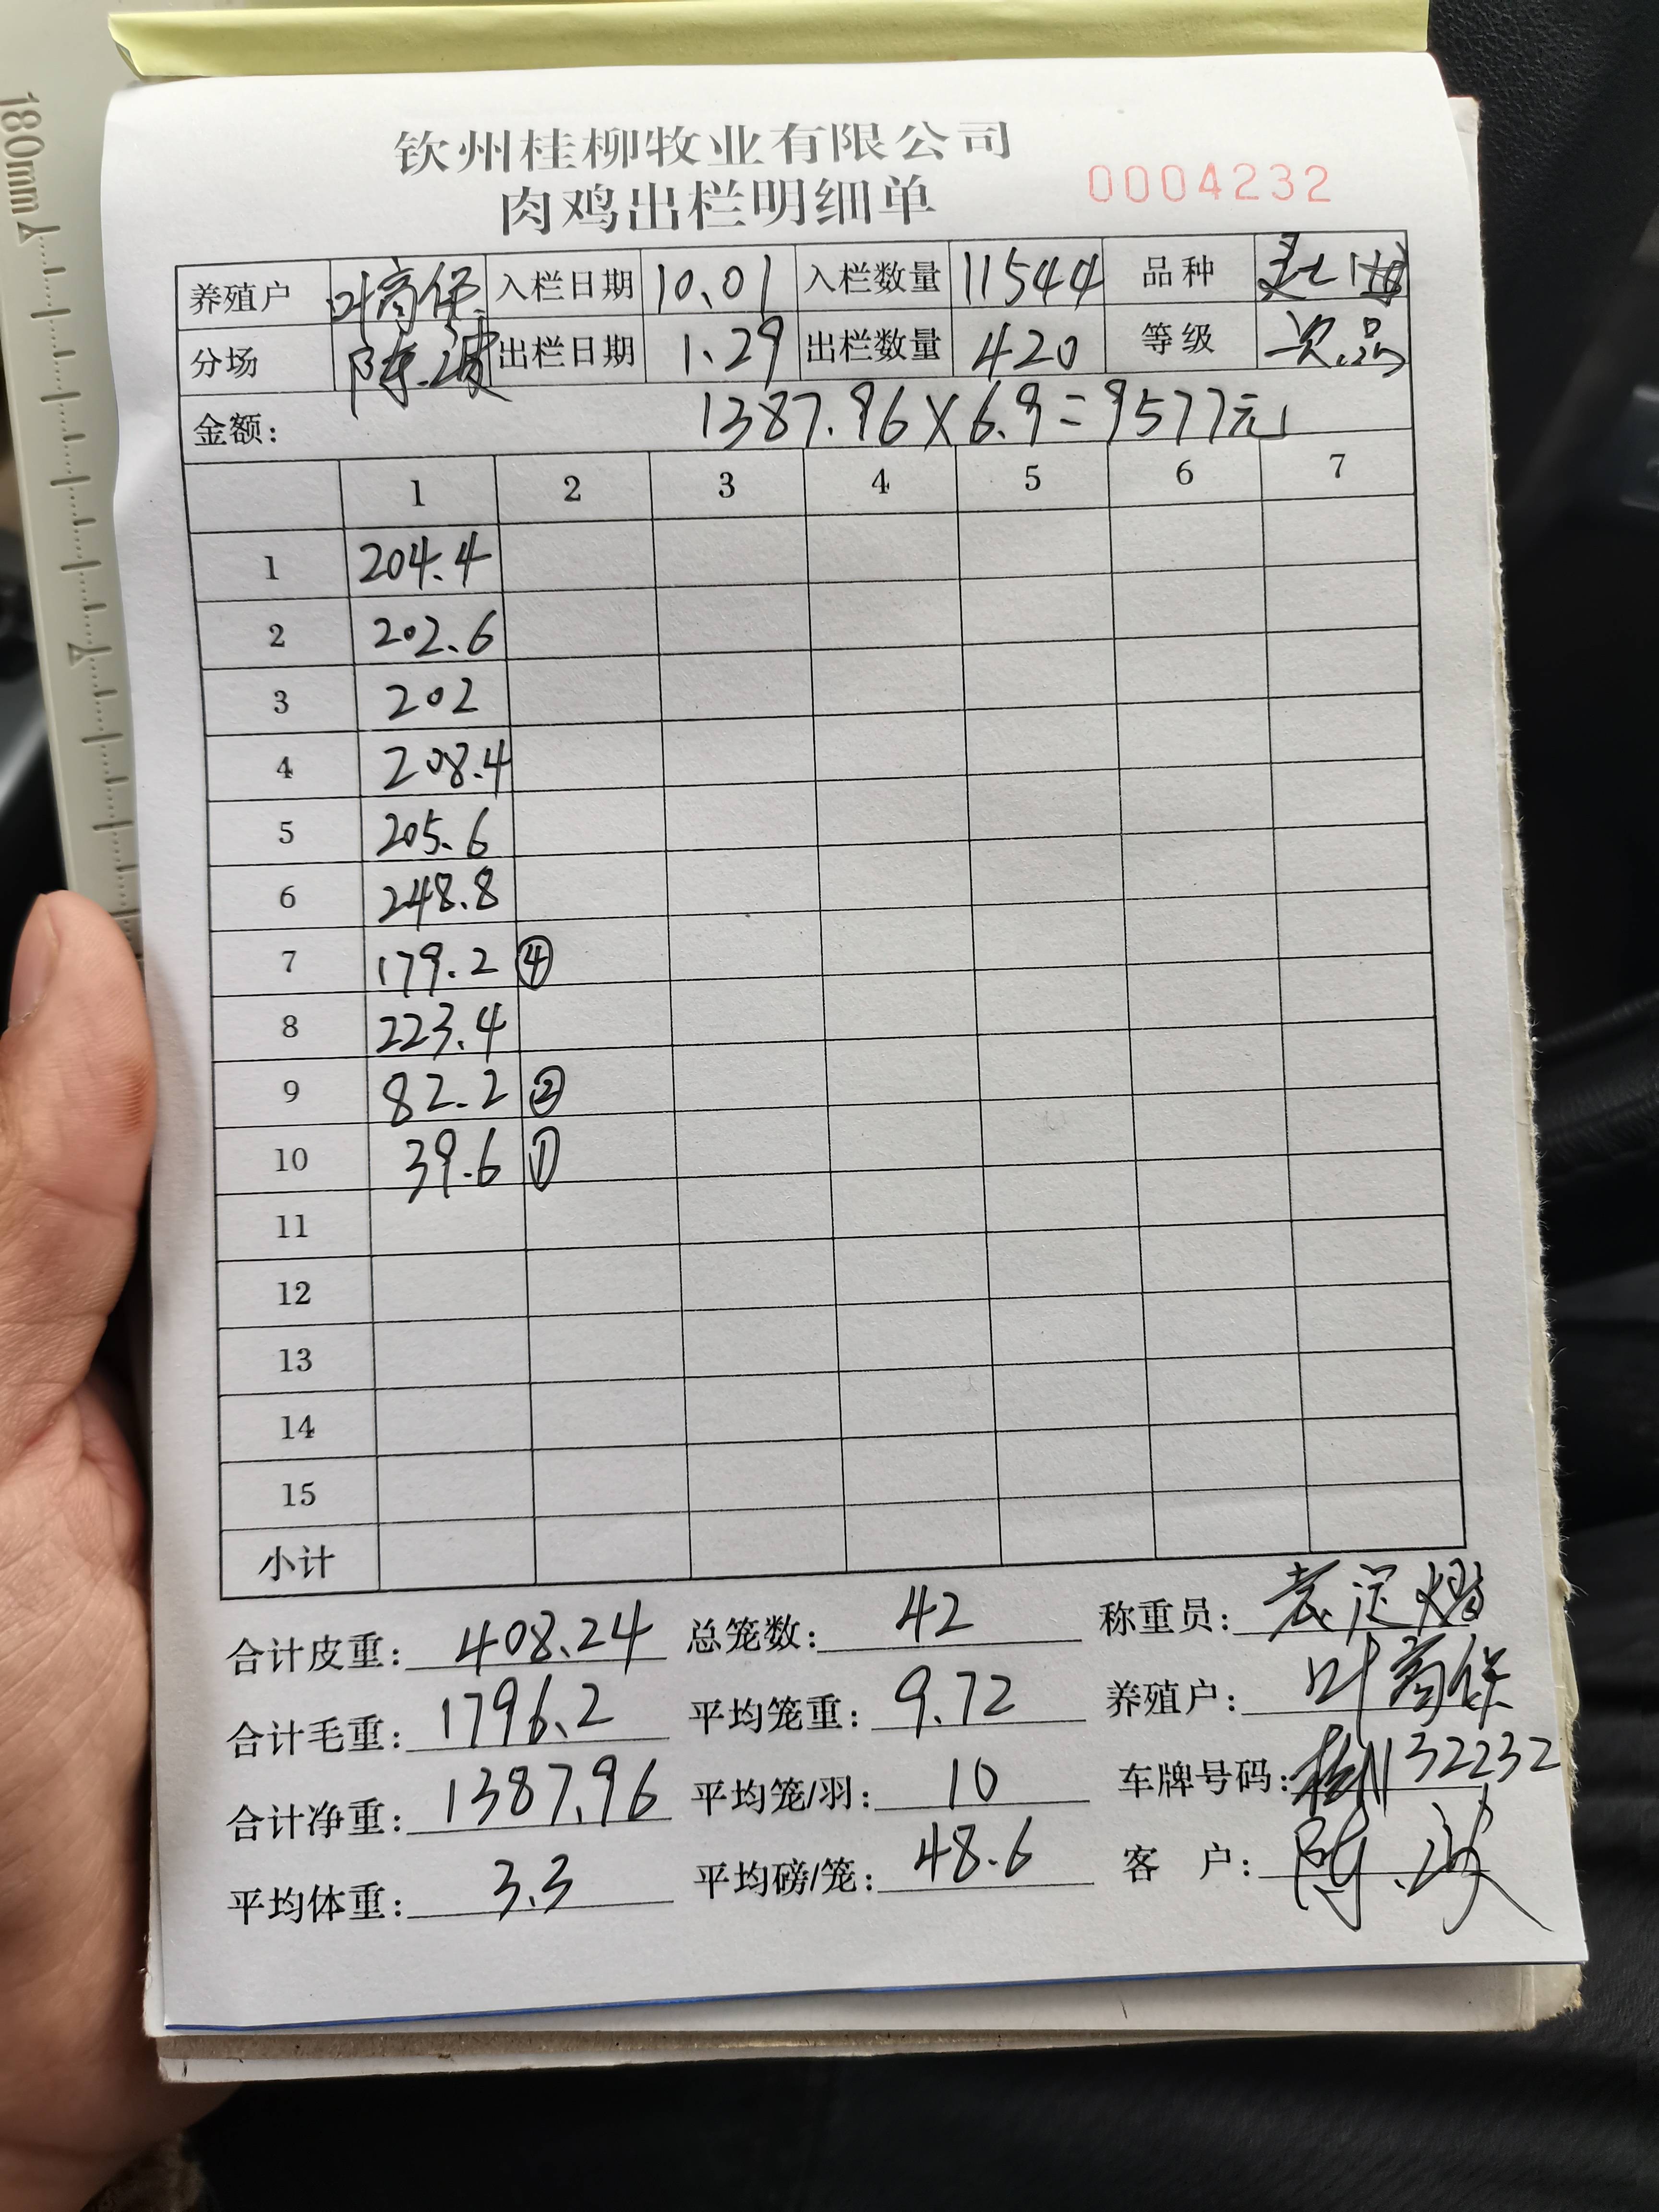 180mm
钦州桂柳牧业有限公司
肉鸡出栏明细单 0004232
养殖户 叶 入栏日期 10.01 入栏数量 11544 品种
分场 陈波 出栏日期 1.29 出栏数量 420 等级 次品
金额: 1387.96×6.9=9577元
1 2 3 4 5 6 7
1 204.4
2 202.6
3 202
4 208.4
5 205.6
6 248.8
7 179.2 ④
8 223.4
9 82.2 ②
10 39.6 ①
11
12
13
14
15
小计
合计皮重: 408.24 总笼数: 42 称重员:
合计毛重: 1796.2 平均笼重: 9.72 养殖户: 叶
合计净重: 1387.96 平均笼/羽: 10 车牌号码: 32232
平均体重: 3.3 平均磅/笼: 48.6 客 户: 陈波